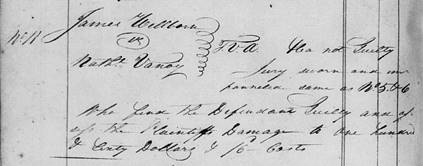 James Wellborn
vs
Nathl. Vanoy
T V A Plea not Guilty
Jury sworn and im
pannelled same as No 5 & 6
Who find the Defendant Guilty and as
sess the Plaintiffs Damage to one hundred
& Dollars & 6d Costs